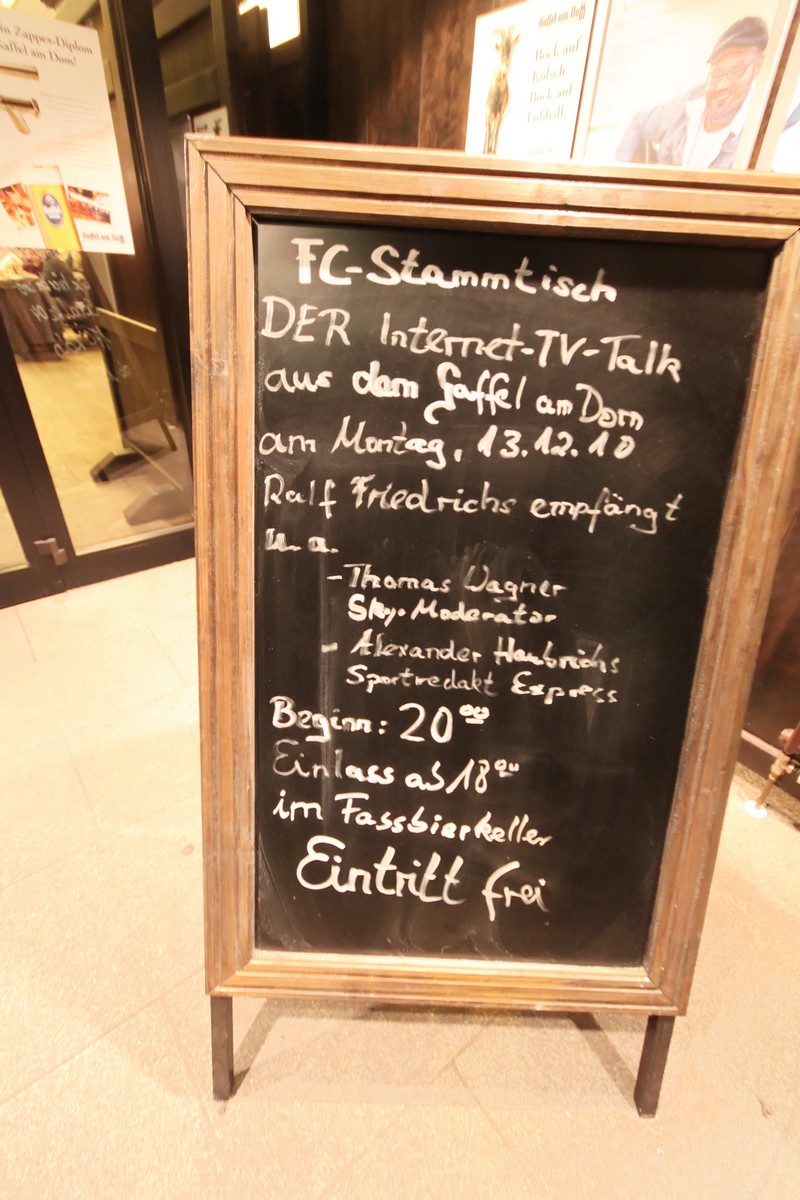 in Zappes-Diplom
Gaffel am Dom!
Gaffel am Dom
Gaffel am Dom
Bock auf
Kölsch,
Bock auf
Fußball
FC-Stammtisch
DER Internet-TV-Talk
aus dem Gaffel am Dom
am Montag, 13.12.10
Ralf Friedrichs empfängt
u.a.
- Thomas Wagner
Sky-Moderator
- Alexander Haubrichs
Sportredakt Express
Beginn: 20 00
Einlass ab 18 00
im Fassbierkeller
Eintritt frei